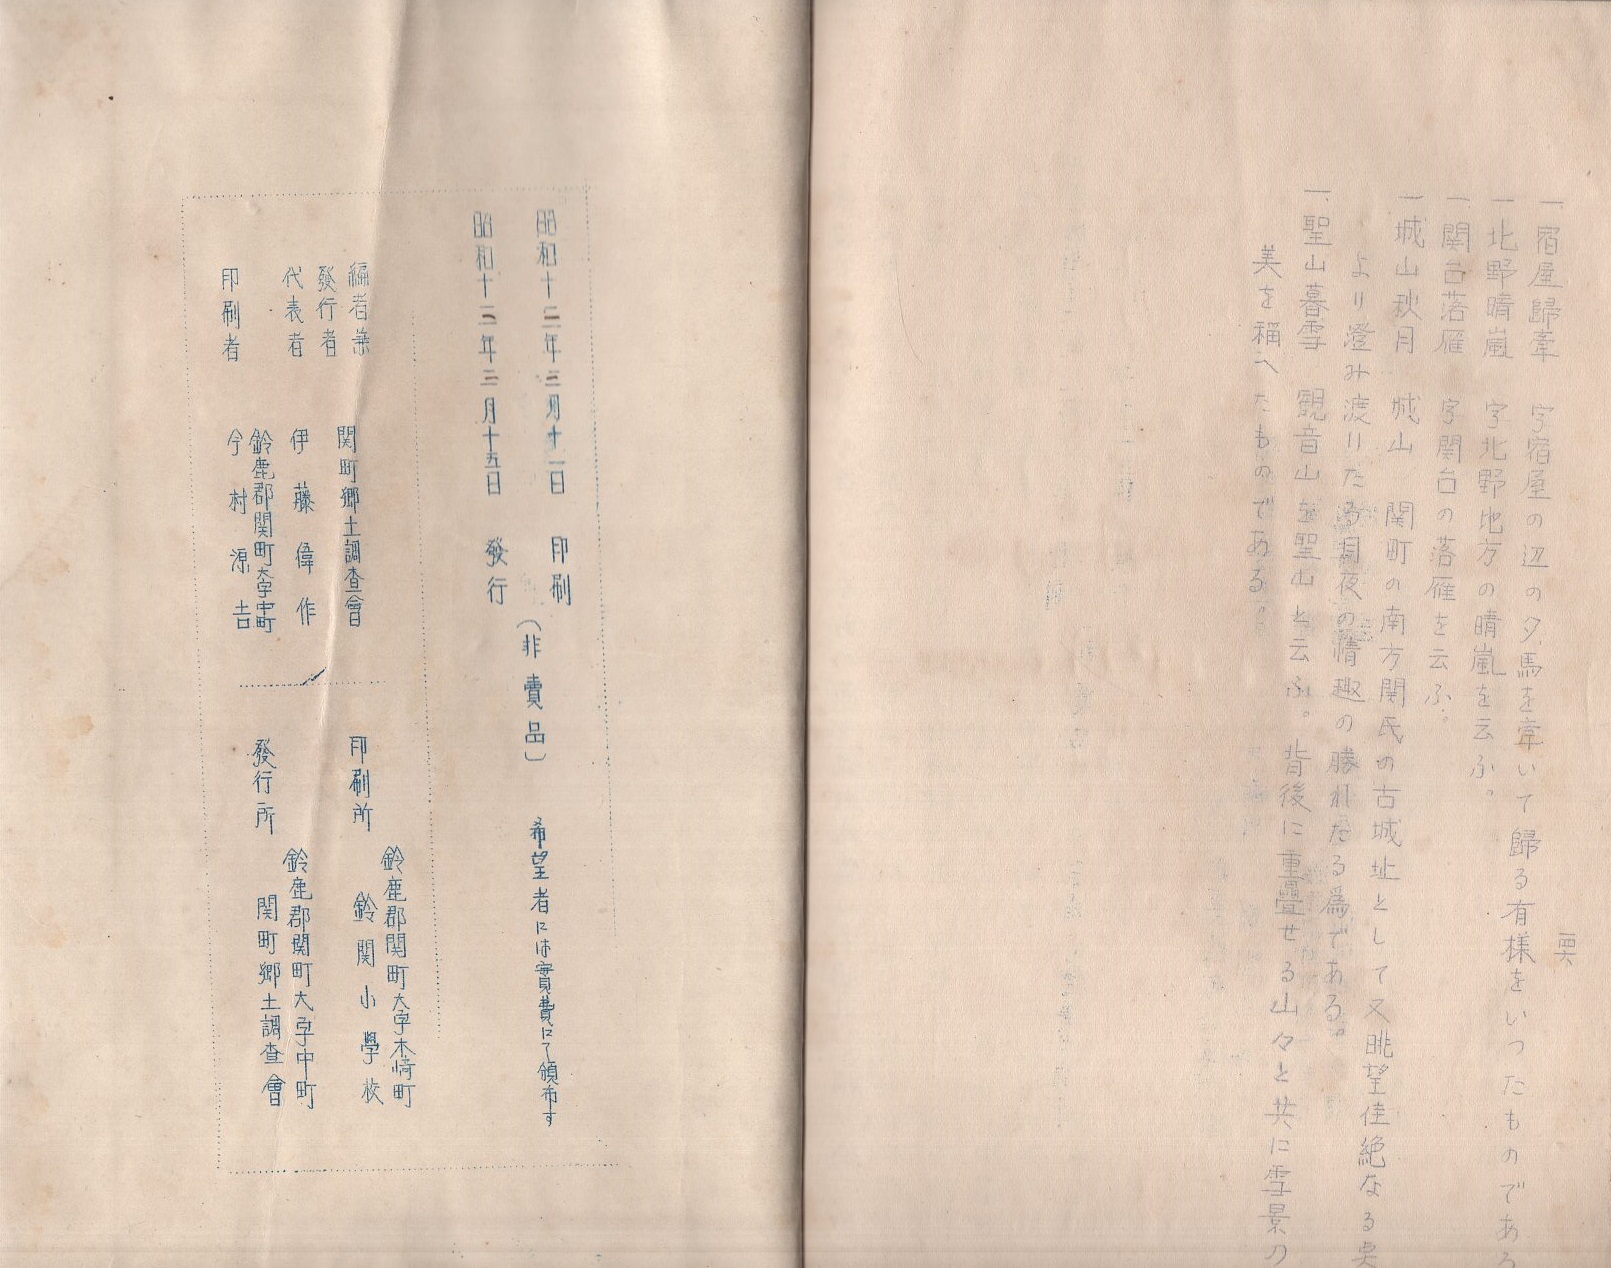 一、宿屋歸牽　字宿屋の辺の夕、馬を牽いて歸る有様をいつたものである
一、北野晴嵐　字北野地方の晴嵐を云ふ。
一、関台落雁　字関台の落雁を云ふ。
一、城山秋月　城山　関町の南方関氏の古城址として又眺望佳絶なる
より澄み渡りたる月夜の情趣の勝れたる爲である。
一、聖山暮雪　観音山を聖山と云ふ。背後に重疊せる山々と共に雪景の
美を稱へたものである。
昭和十二年三月十一日　印刷
（非賣品）　希望者には實費にて頒布す
昭和十二年三月十五日　發行
編者兼
發行者　関町郷土調査會
代表者　伊藤偉作
鈴鹿郡関町大字中町
印刷者　今村源吉
鈴鹿郡関町大字木崎町
印刷所　鈴関小學校
鈴鹿郡関町大字中町
發行所　関町郷土調査會